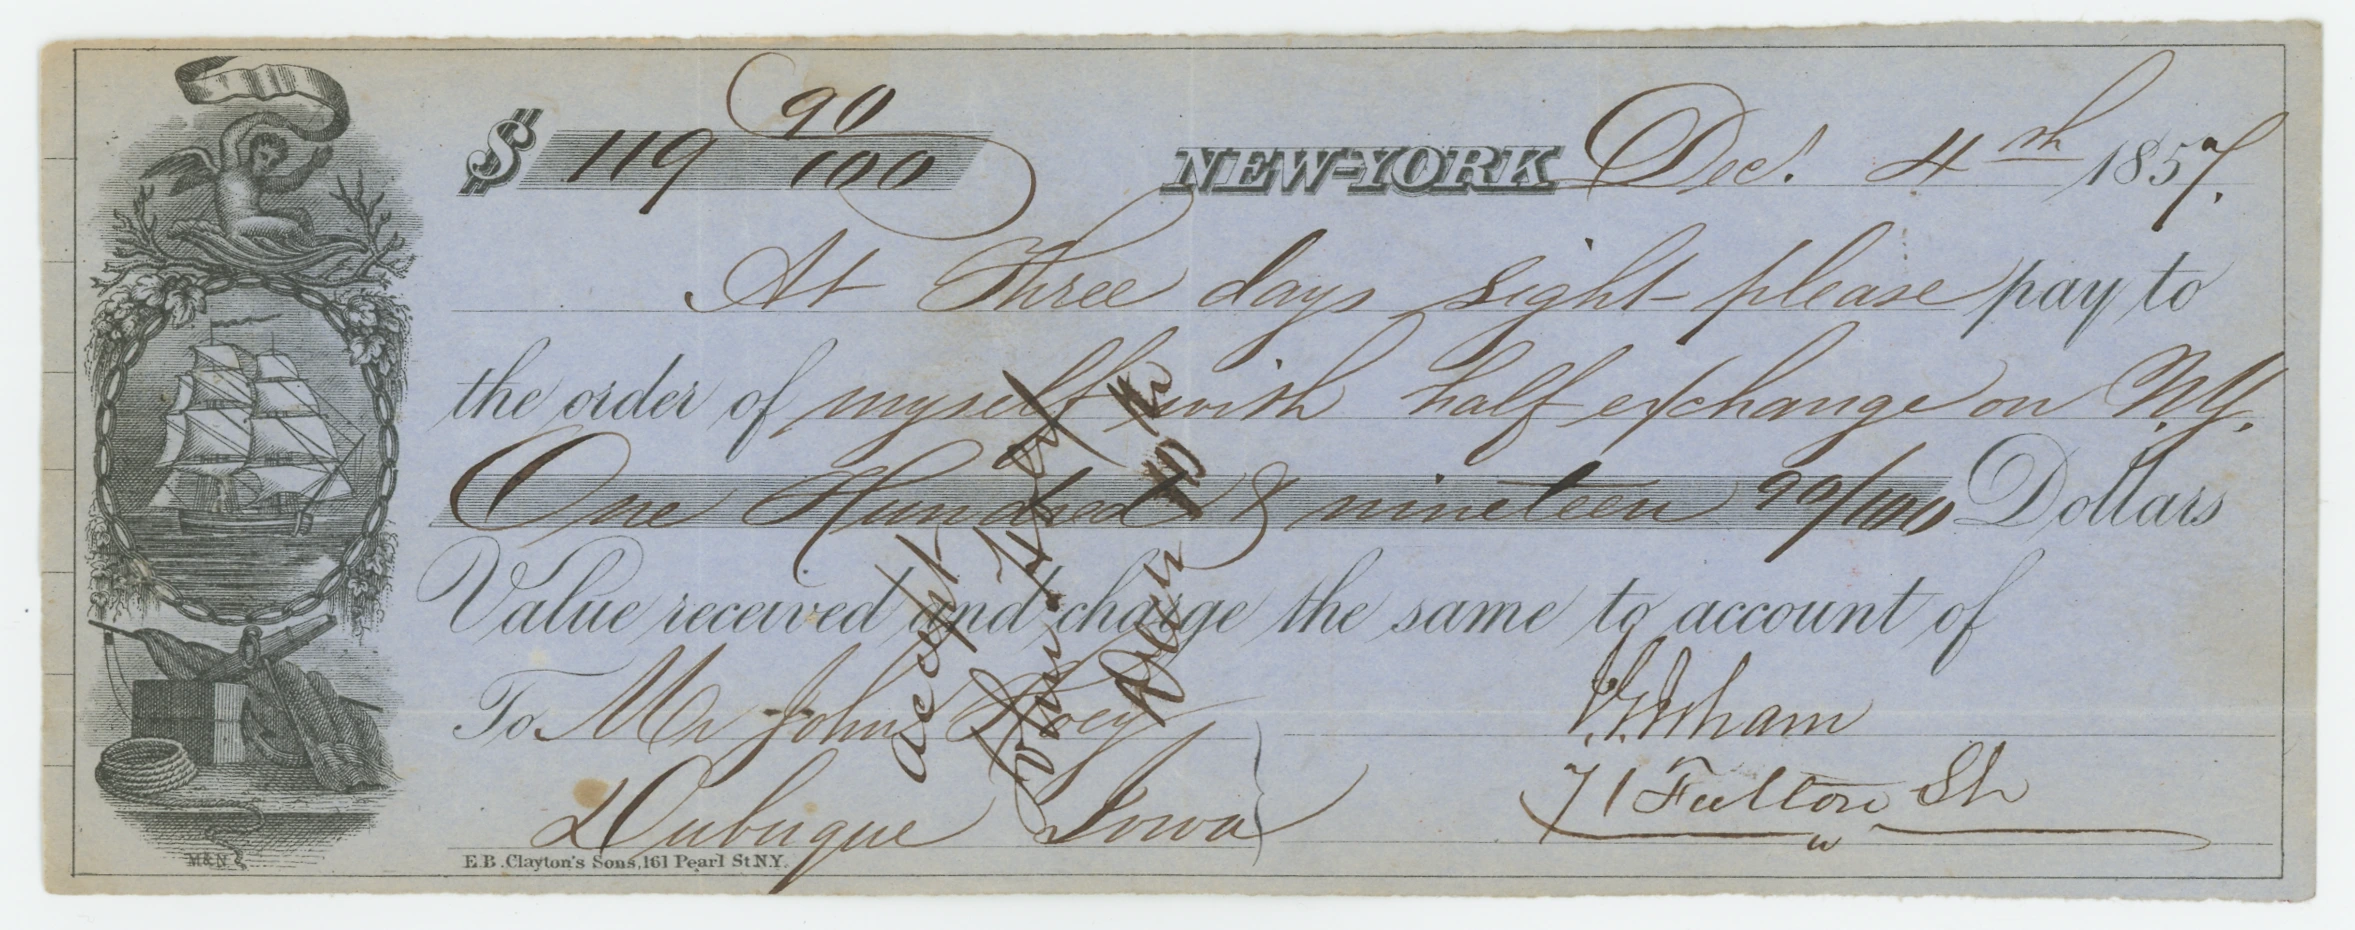 $ 119 90/100 NEW-YORK Dec. 4th 1857.
At Three days sight please pay to
the order of myself with half exchange on N.Y.
One Hundred & nineteen 90/100 Dollars
Value received and charge the same to account of
To Mr John
Dubuque Iowa
71 Fulton St
M&N
E.B. Clayton's Sons, 161 Pearl St N.Y.
accept